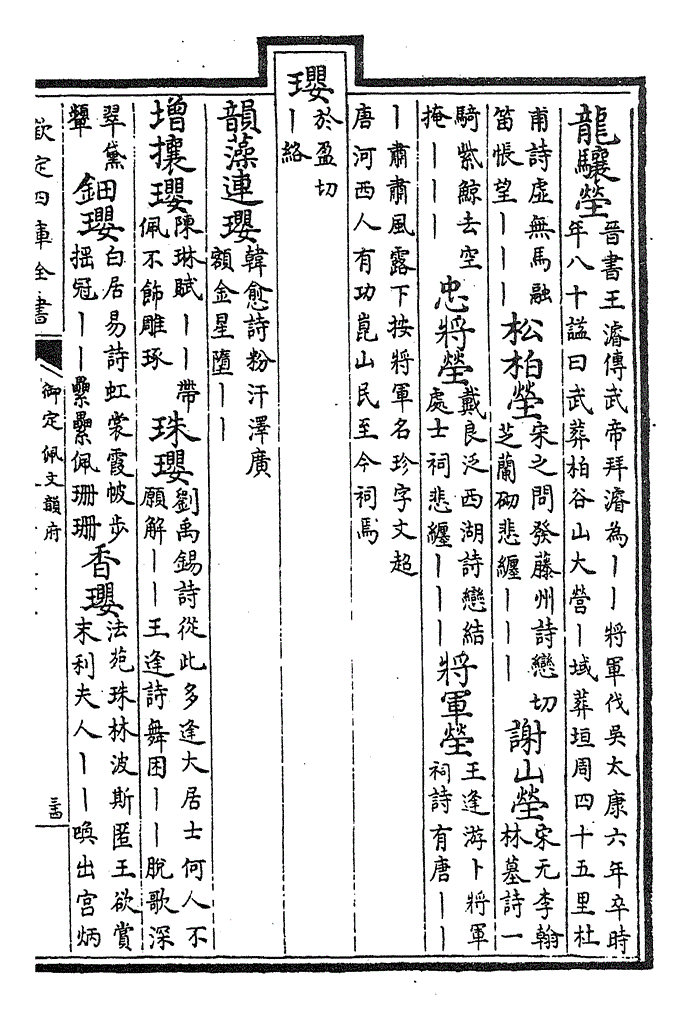 龍驤塋晉書王濬傳武帝拜濬為丨丨將軍伐吳太康六年卒時
年八十諡曰武葬柏谷山大營丨域葬垣周四十五里杜
甫詩虛無馬融
笛悵望丨丨丨松柏塋宋之問發藤州詩戀切
芝蘭砌悲纏丨丨丨謝山塋宋无李翰
林墓詩一
騎紫鯨去空
掩丨丨丨忠將塋戴良泛西湖詩戀結
處士祠悲纏丨丨丨將軍塋王逢游卞將軍
祠詩有唐丨丨
丨肅肅風露下按將軍名珍字文超
唐河西人有功崑山民至今祠焉
瓔於盈切
丨絡
韻藻連瓔韓愈詩粉汗澤廣
額金星墮丨丨
增攘瓔陳琳賦丨丨帶
佩不飾雕琢珠瓔劉禹錫詩從此多逢大居士何人不
願解丨丨王逢詩舞困丨丨脫歌深
翠黛
顰鈿瓔白居易詩虹裳霞帔步
搖冠丨丨纍纍佩珊珊香瓔法苑珠林波斯匿王欲賞
末利夫人丨丨喚出宮炳
欽定四庫全書
御定佩文韻府